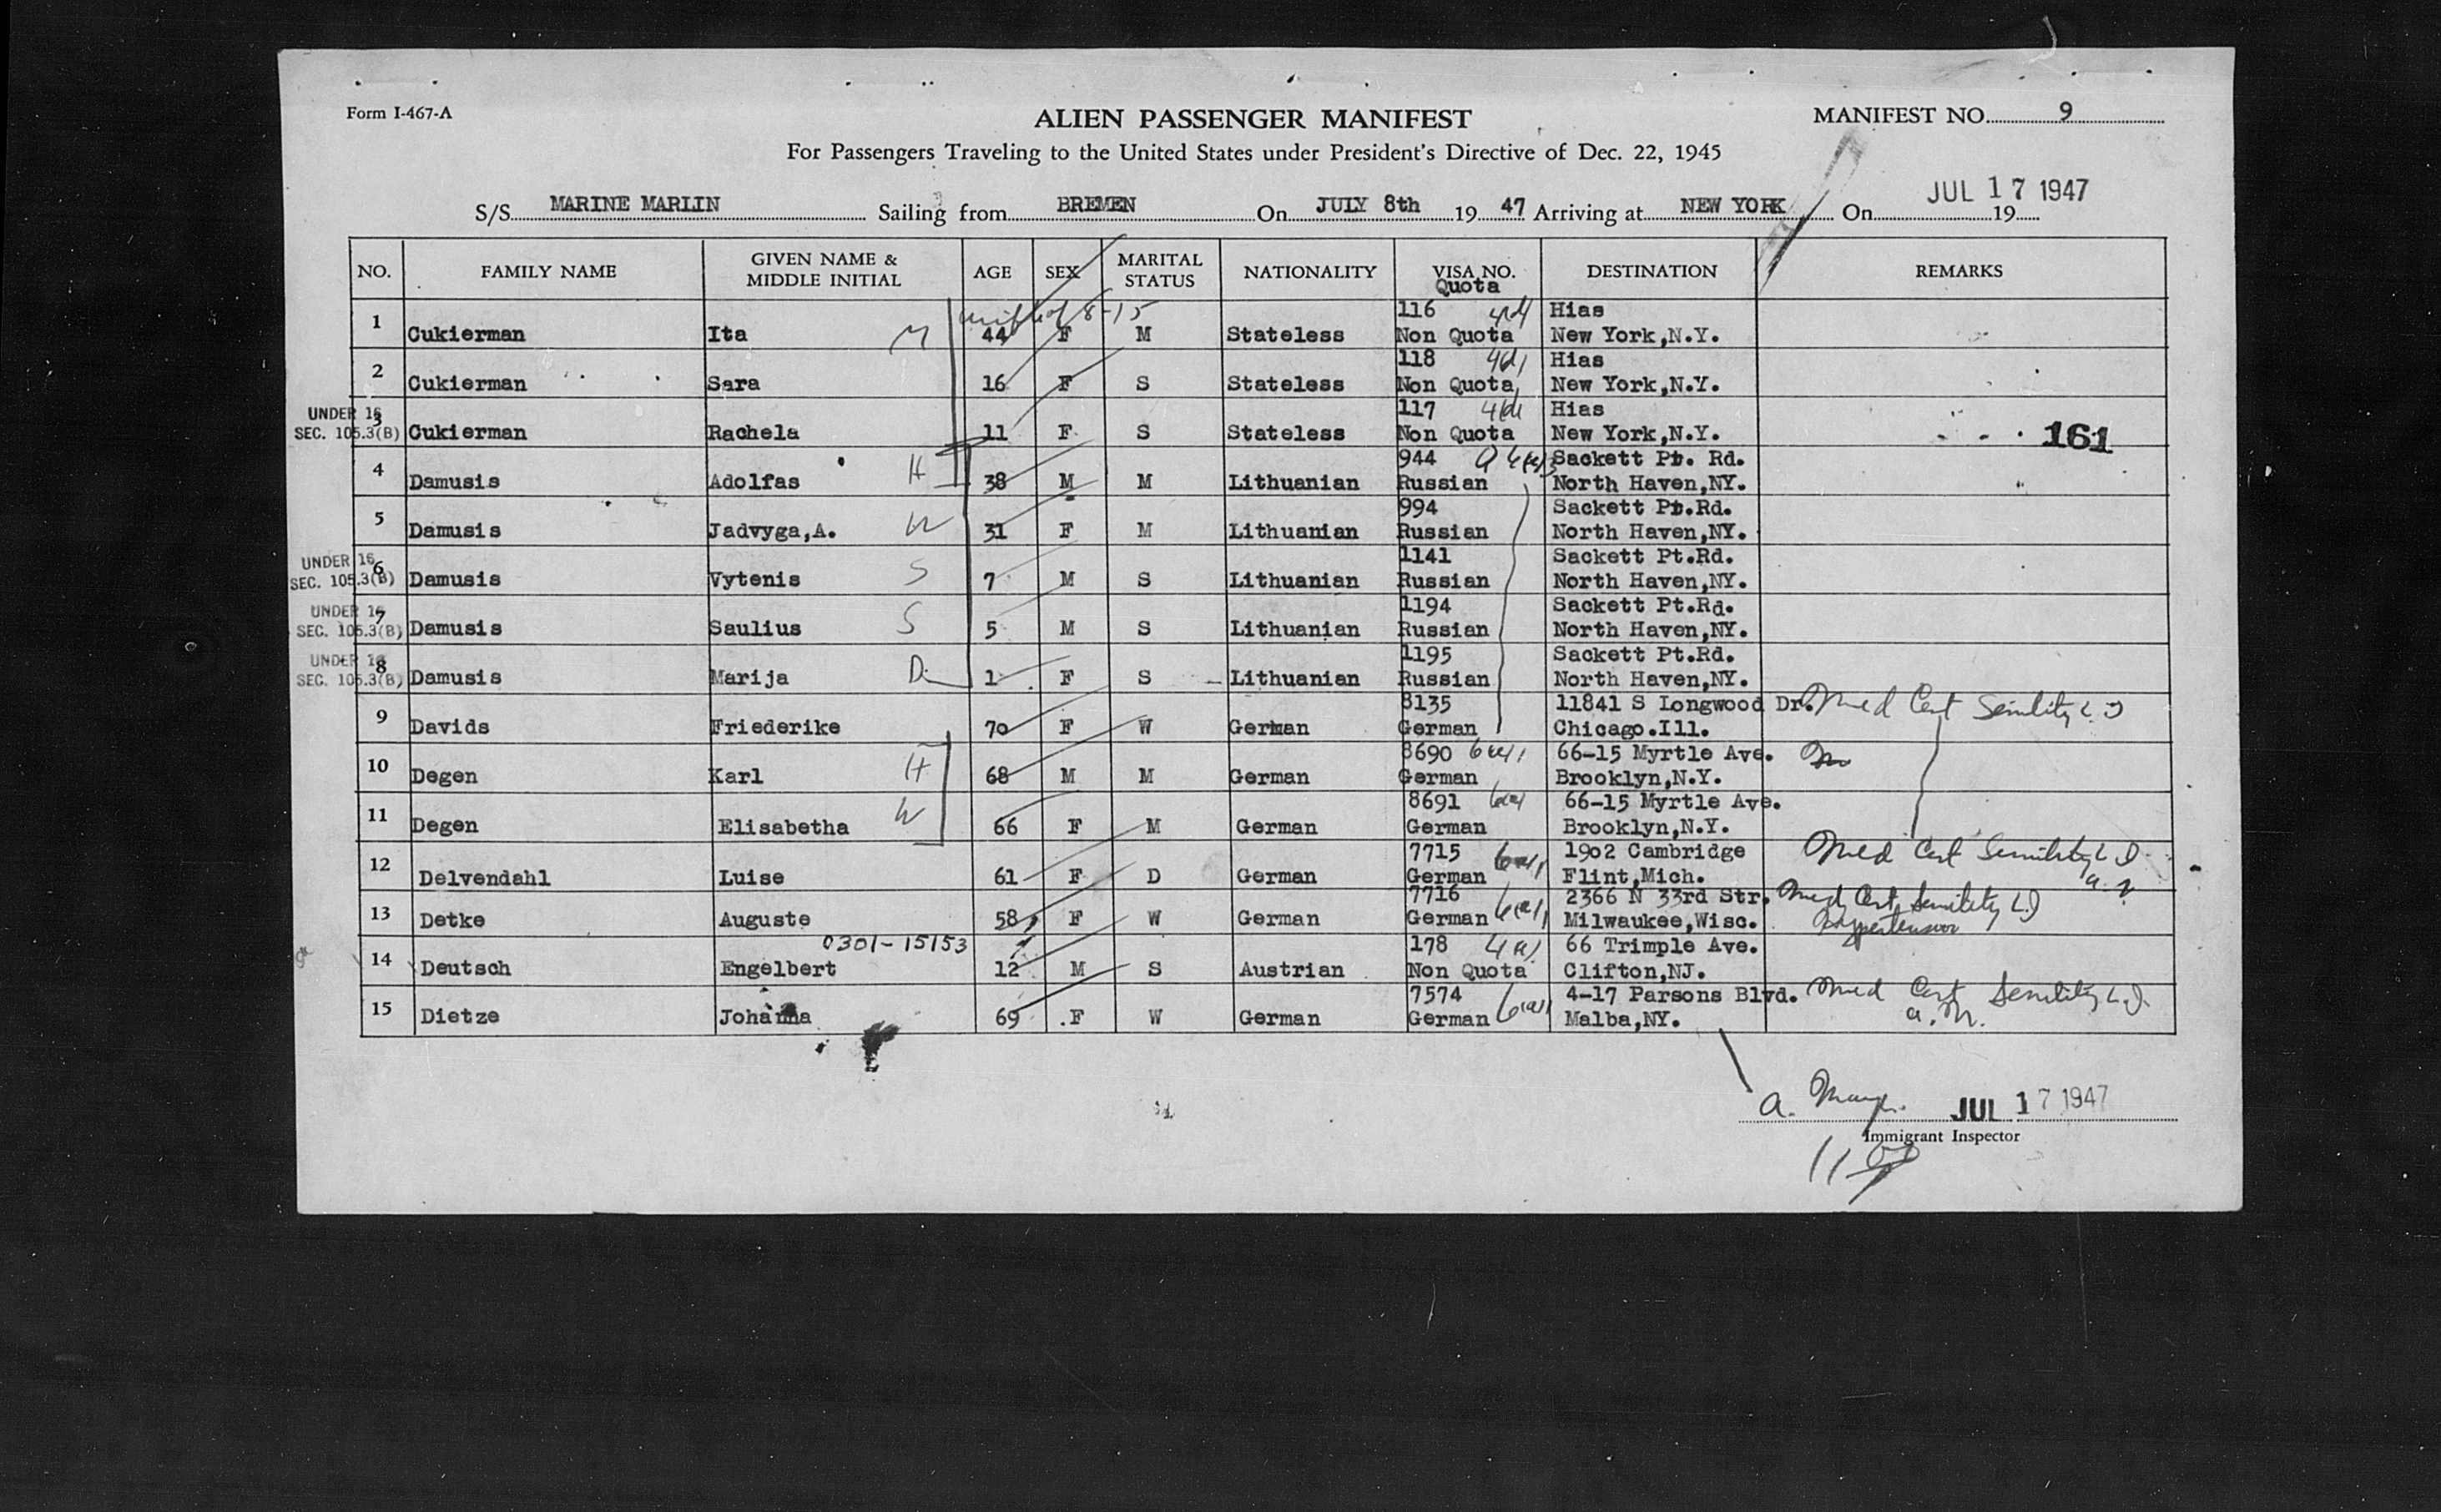 Form I-467-A
ALIEN PASSENGER MANIFEST
MANIFEST NO. 9
For Passengers Traveling to the United States under President's Directive of Dec. 22, 1945
JUL 17 1947
S/S MARINE MARLIN Sailing from BREMEN On JULY 8th 19 47 Arriving at NEW YORK On 19
NO. FAMILY NAME GIVEN NAME & MIDDLE INITIAL AGE SEX MARITAL STATUS NATIONALITY VISA NO. Quota DESTINATION REMARKS
116 Hias
1 Cukierman Ita M 44 F M Stateless Non Quota New York,N.Y.
118 Hias
2 Cukierman Sara 16 F S Stateless Non Quota New York,N.Y.
UNDER 16 117 Hias
SEC. 105.3(B) 3 Cukierman Rachela 11 F S Stateless Non Quota New York,N.Y. 161
944 Sackett Pt. Rd.
4 Damusis Adolfas H 38 M M Lithuanian Russian North Haven,NY.
994 Sackett Pt.Rd.
5 Damusis Jadvyga,A. W 31 F M Lithuanian Russian North Haven,NY.
UNDER 16 1141 Sackett Pt.Rd.
SEC. 105.3(B) 6 Damusis Vytenis S 7 M S Lithuanian Russian North Haven,NY.
UNDER 16 1194 Sackett Pt.Rd.
SEC. 105.3(B) 7 Damusis Saulius S 5 M S Lithuanian Russian North Haven,NY.
UNDER 16 1195 Sackett Pt.Rd.
SEC. 105.3(B) 8 Damusis Marija D 1 F S Lithuanian Russian North Haven,NY.
8135 11841 S Longwood Dr. Med Cert Senility
9 Davids Friederike 70 F W German German Chicago.Ill.
8690 66-15 Myrtle Ave.
10 Degen Karl H 68 M M German German Brooklyn,N.Y.
8691 66-15 Myrtle Ave.
11 Degen Elisabetha W 66 F M German German Brooklyn,N.Y.
7715 1902 Cambridge Med Cert Senility
12 Delvendahl Luise 61 F D German German Flint,Mich.
7716 2366 N 33rd Str. Med Cert Senility
13 Detke Auguste 58 F W German German Milwaukee,Wisc. Hypertension
0301-15153 178 66 Trimple Ave.
14 Deutsch Engelbert 12 M S Austrian Non Quota Clifton,NJ.
7574 4-17 Parsons Blvd. Med Cert Senility
15 Dietze Johanna 69 F W German German Malba,NY.
JUL 17 1947
Immigrant Inspector